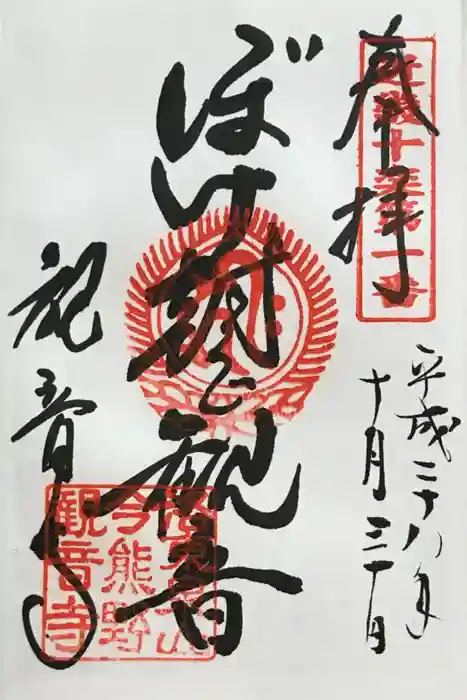 奉拝
近畿十楽第一番
平成二十八年
十月三十日
ぼけ封じ観音
観音寺
今熊野
観音寺